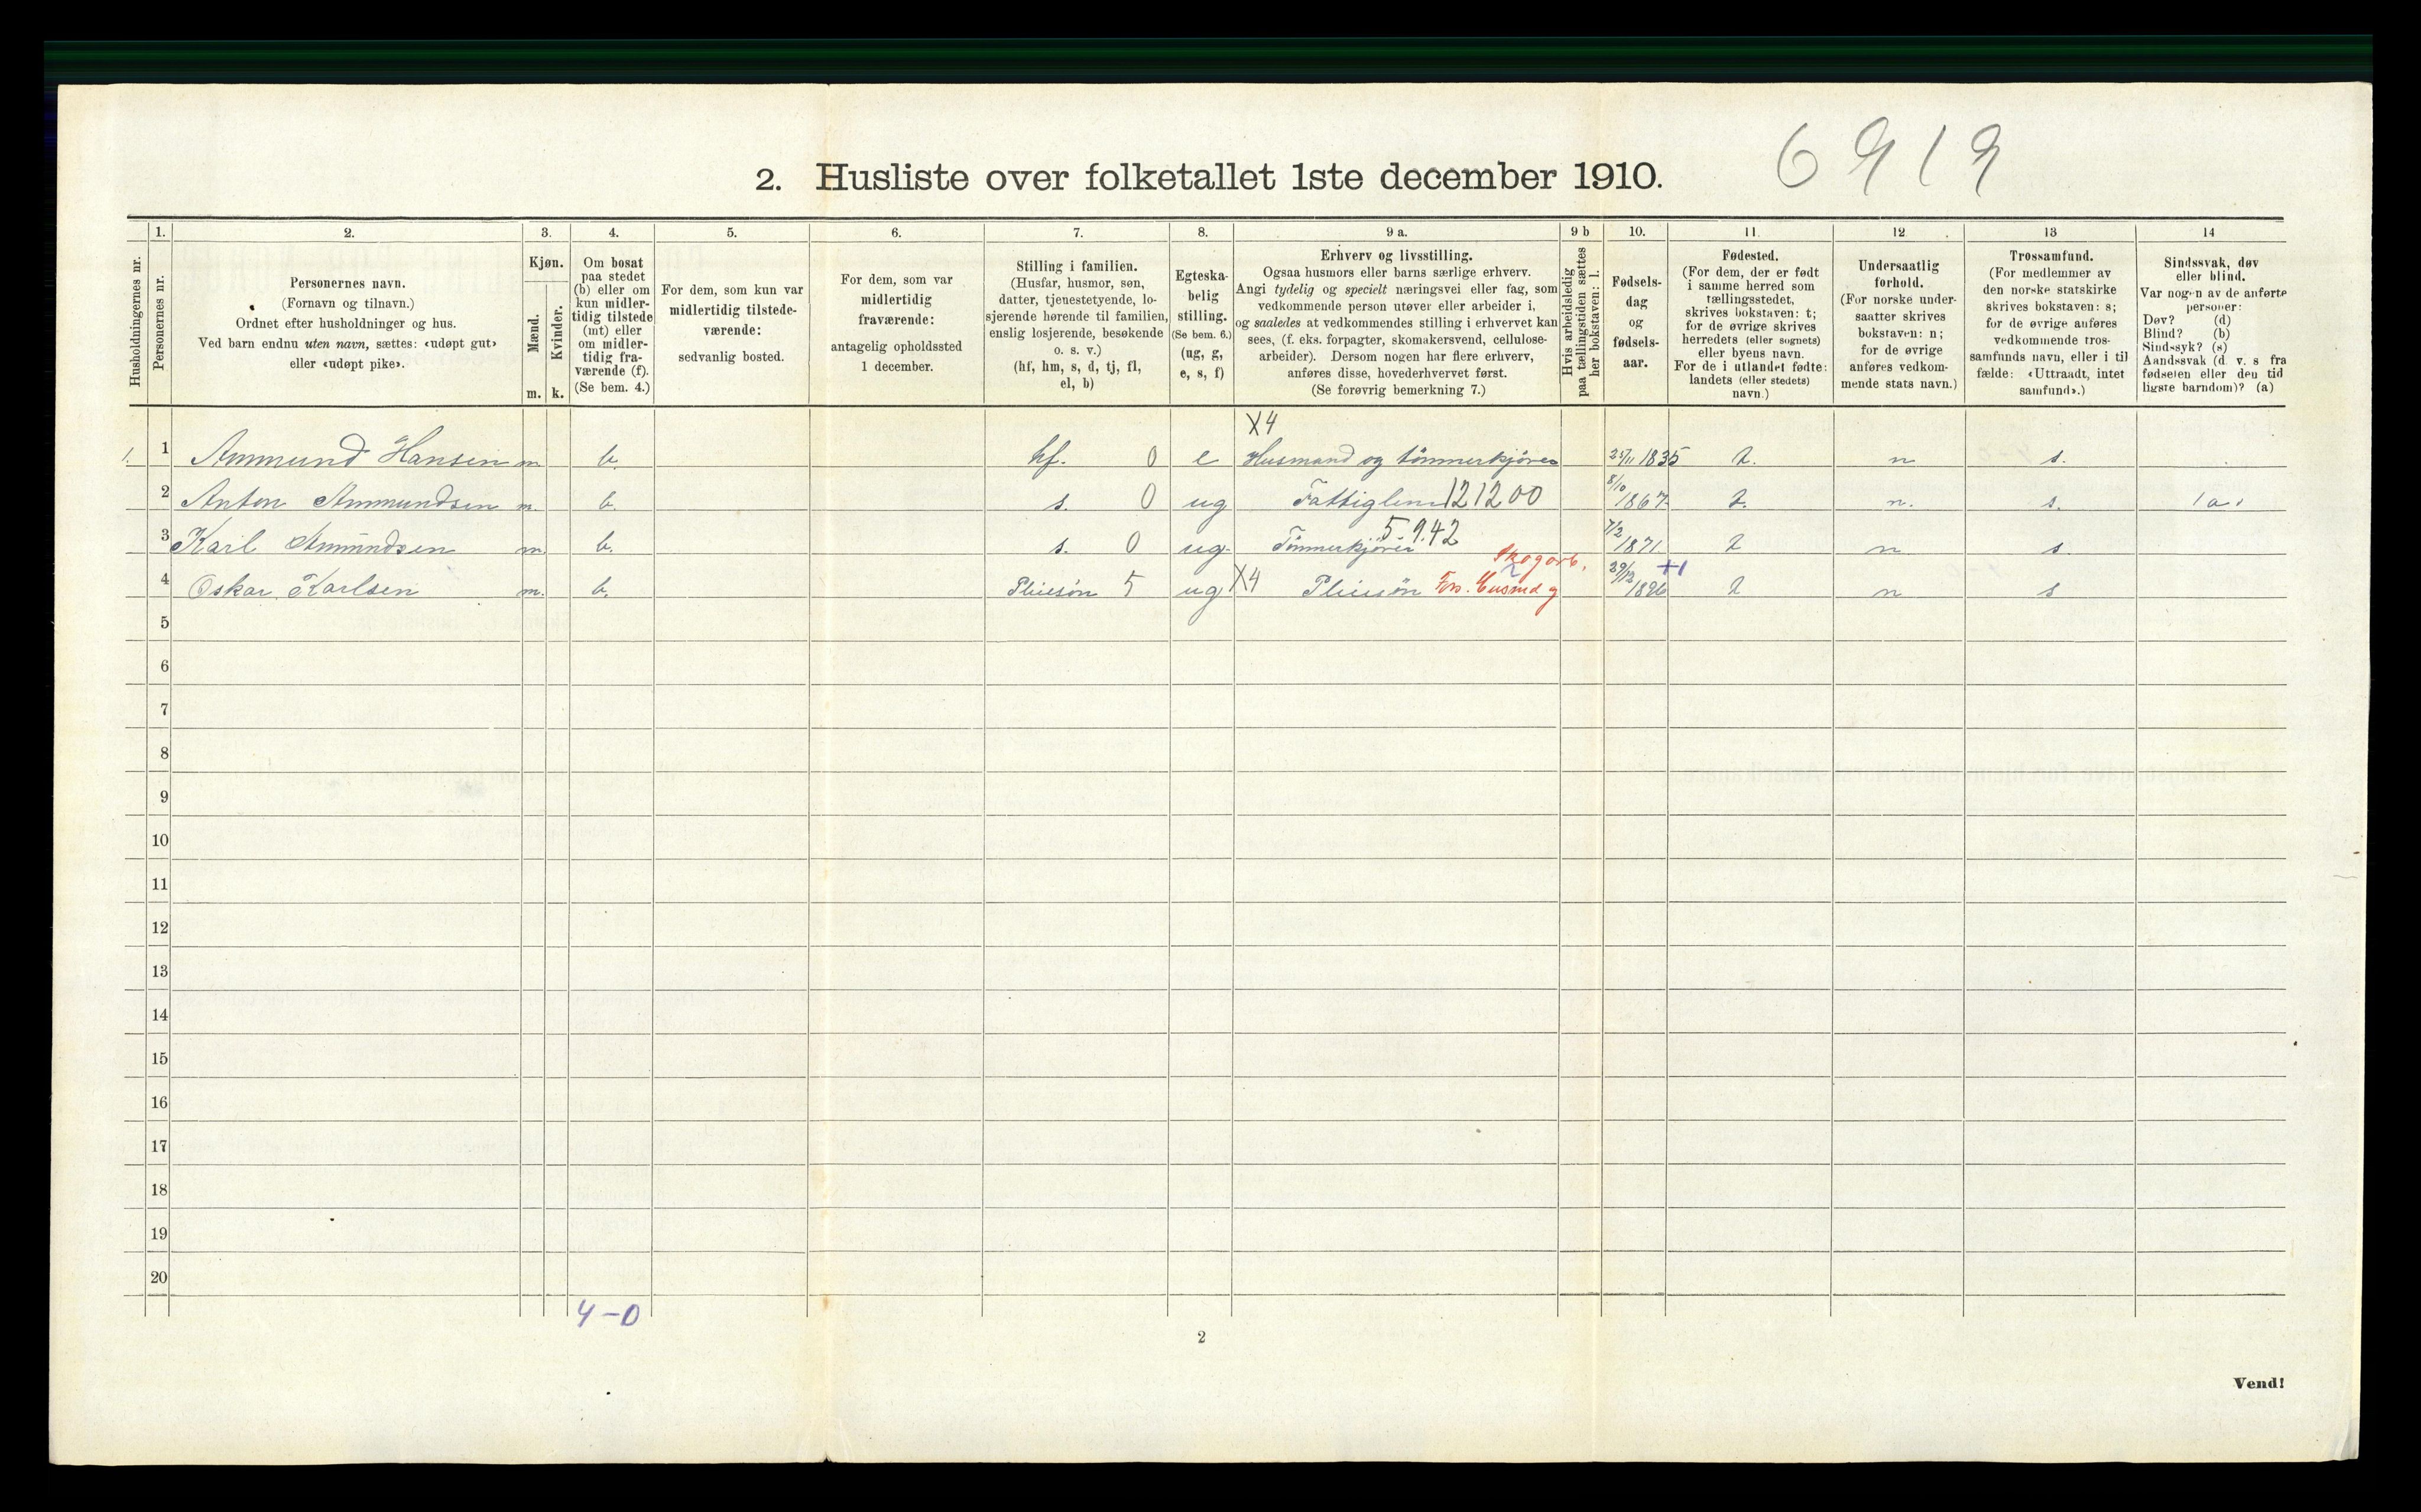 6 9 1 9
2. Husliste over folketallet 1ste december 1910.
1. 2. 3. 4. 5. 6. 7. 8. 9 a. 9 b 10. 11. 12 13 14
Husholdningernes nr.
Personernes nr.
Personernes navn.
(Fornavn og tilnavn.)
Ordnet efter husholdninger og hus.
Ved barn endnu uten navn, sættes: «udøpt gut»
eller «udøpt pike».
Kjøn.
Mænd.
Kvinder.
m. k.
Om bosat
paa stedet
(b) eller om
kun midler-
tidig tilstede
(mt) eller
om midler-
tidig fra-
værende (f).
(Se bem. 4.)
For dem, som kun var
midlertidig tilstede-
værende:
sedvanlig bosted.
For dem, som var
midlertidig
fraværende:
antagelig opholdssted
1 december.
Stilling i familien.
(Husfar, husmor, søn,
datter, tjenestetyende, lo-
sjerende hørende til familien,
enslig losjerende, besøkende
o. s. v.)
(hf, hm, s, d, tj, fl,
el, b)
Egteska-
belig
stilling.
(Se bem. 6.)
(ug, g,
e, s, f)
Erhverv og livsstilling.
Ogsaa husmors eller barns særlige erhverv.
Angi tydelig og specielt næringsvei eller fag, som
vedkommende person utøver eller arbeider i,
og saaledes at vedkommendes stilling i erhvervet kan
sees, (f. eks. forpagter, skomakersvend, cellulose-
arbeider). Dersom nogen har flere erhverv,
anføres disse, hovederhvervet først.
(Se forøvrig bemerkning 7.)
Hvis arbeidsledig
paa tællingstiden sættes
her bokstaven: l.
Fødsels-
dag
og
fødsels-
aar.
Fødested.
(For dem, der er født
i samme herred som
tællingsstedet,
skrives bokstaven: t;
for de øvrige skrives
herredets (eller sognets)
eller byens navn.
For de i utlandet fødte:
landets (eller stedets)
navn.)
Undersaatlig
forhold.
(For norske under-
saatter skrives
bokstaven: n;
for de øvrige
anføres vedkom-
mende stats navn.)
Trossamfund.
(For medlemmer av
den norske statskirke
skrives bokstaven: s;
for de øvrige anføres
vedkommende tros-
samfunds navn, eller i til
fælde: «Uttraadt, intet
samfund».)
Sindssvak, døv
eller blind.
Var nogen av de anførte
personer:
Døv? (d)
Blind? (b)
Sindssyk? (s)
Aandssvak (d. v. s. fra
fødselen eller den tid
ligste barndom)? (a)
X4
1. 1 Ammund Hansen m b. hf. 0 e Husmand og tömmerkjörer 25/11 1835 t. n s.
2 Anton Ammundsen m. b. s. 0 ug Fattiglem 121200 8/10 1867 t. n. s. a
5.942
3 Karl Amundsen m. b. s. 0 ug. Tömmerkjörer 7/2 1871 t n s.
Skogarb.
4 Oskar Karlsen m. b. Pleiesön 5 ug X4 Pleiesön Fors. Husmd og 29/12 1896 +1 t n s
5
6
7
8
9
10
11
12
13
14
15
16
17
18
19
20
4-0
2
Vend!